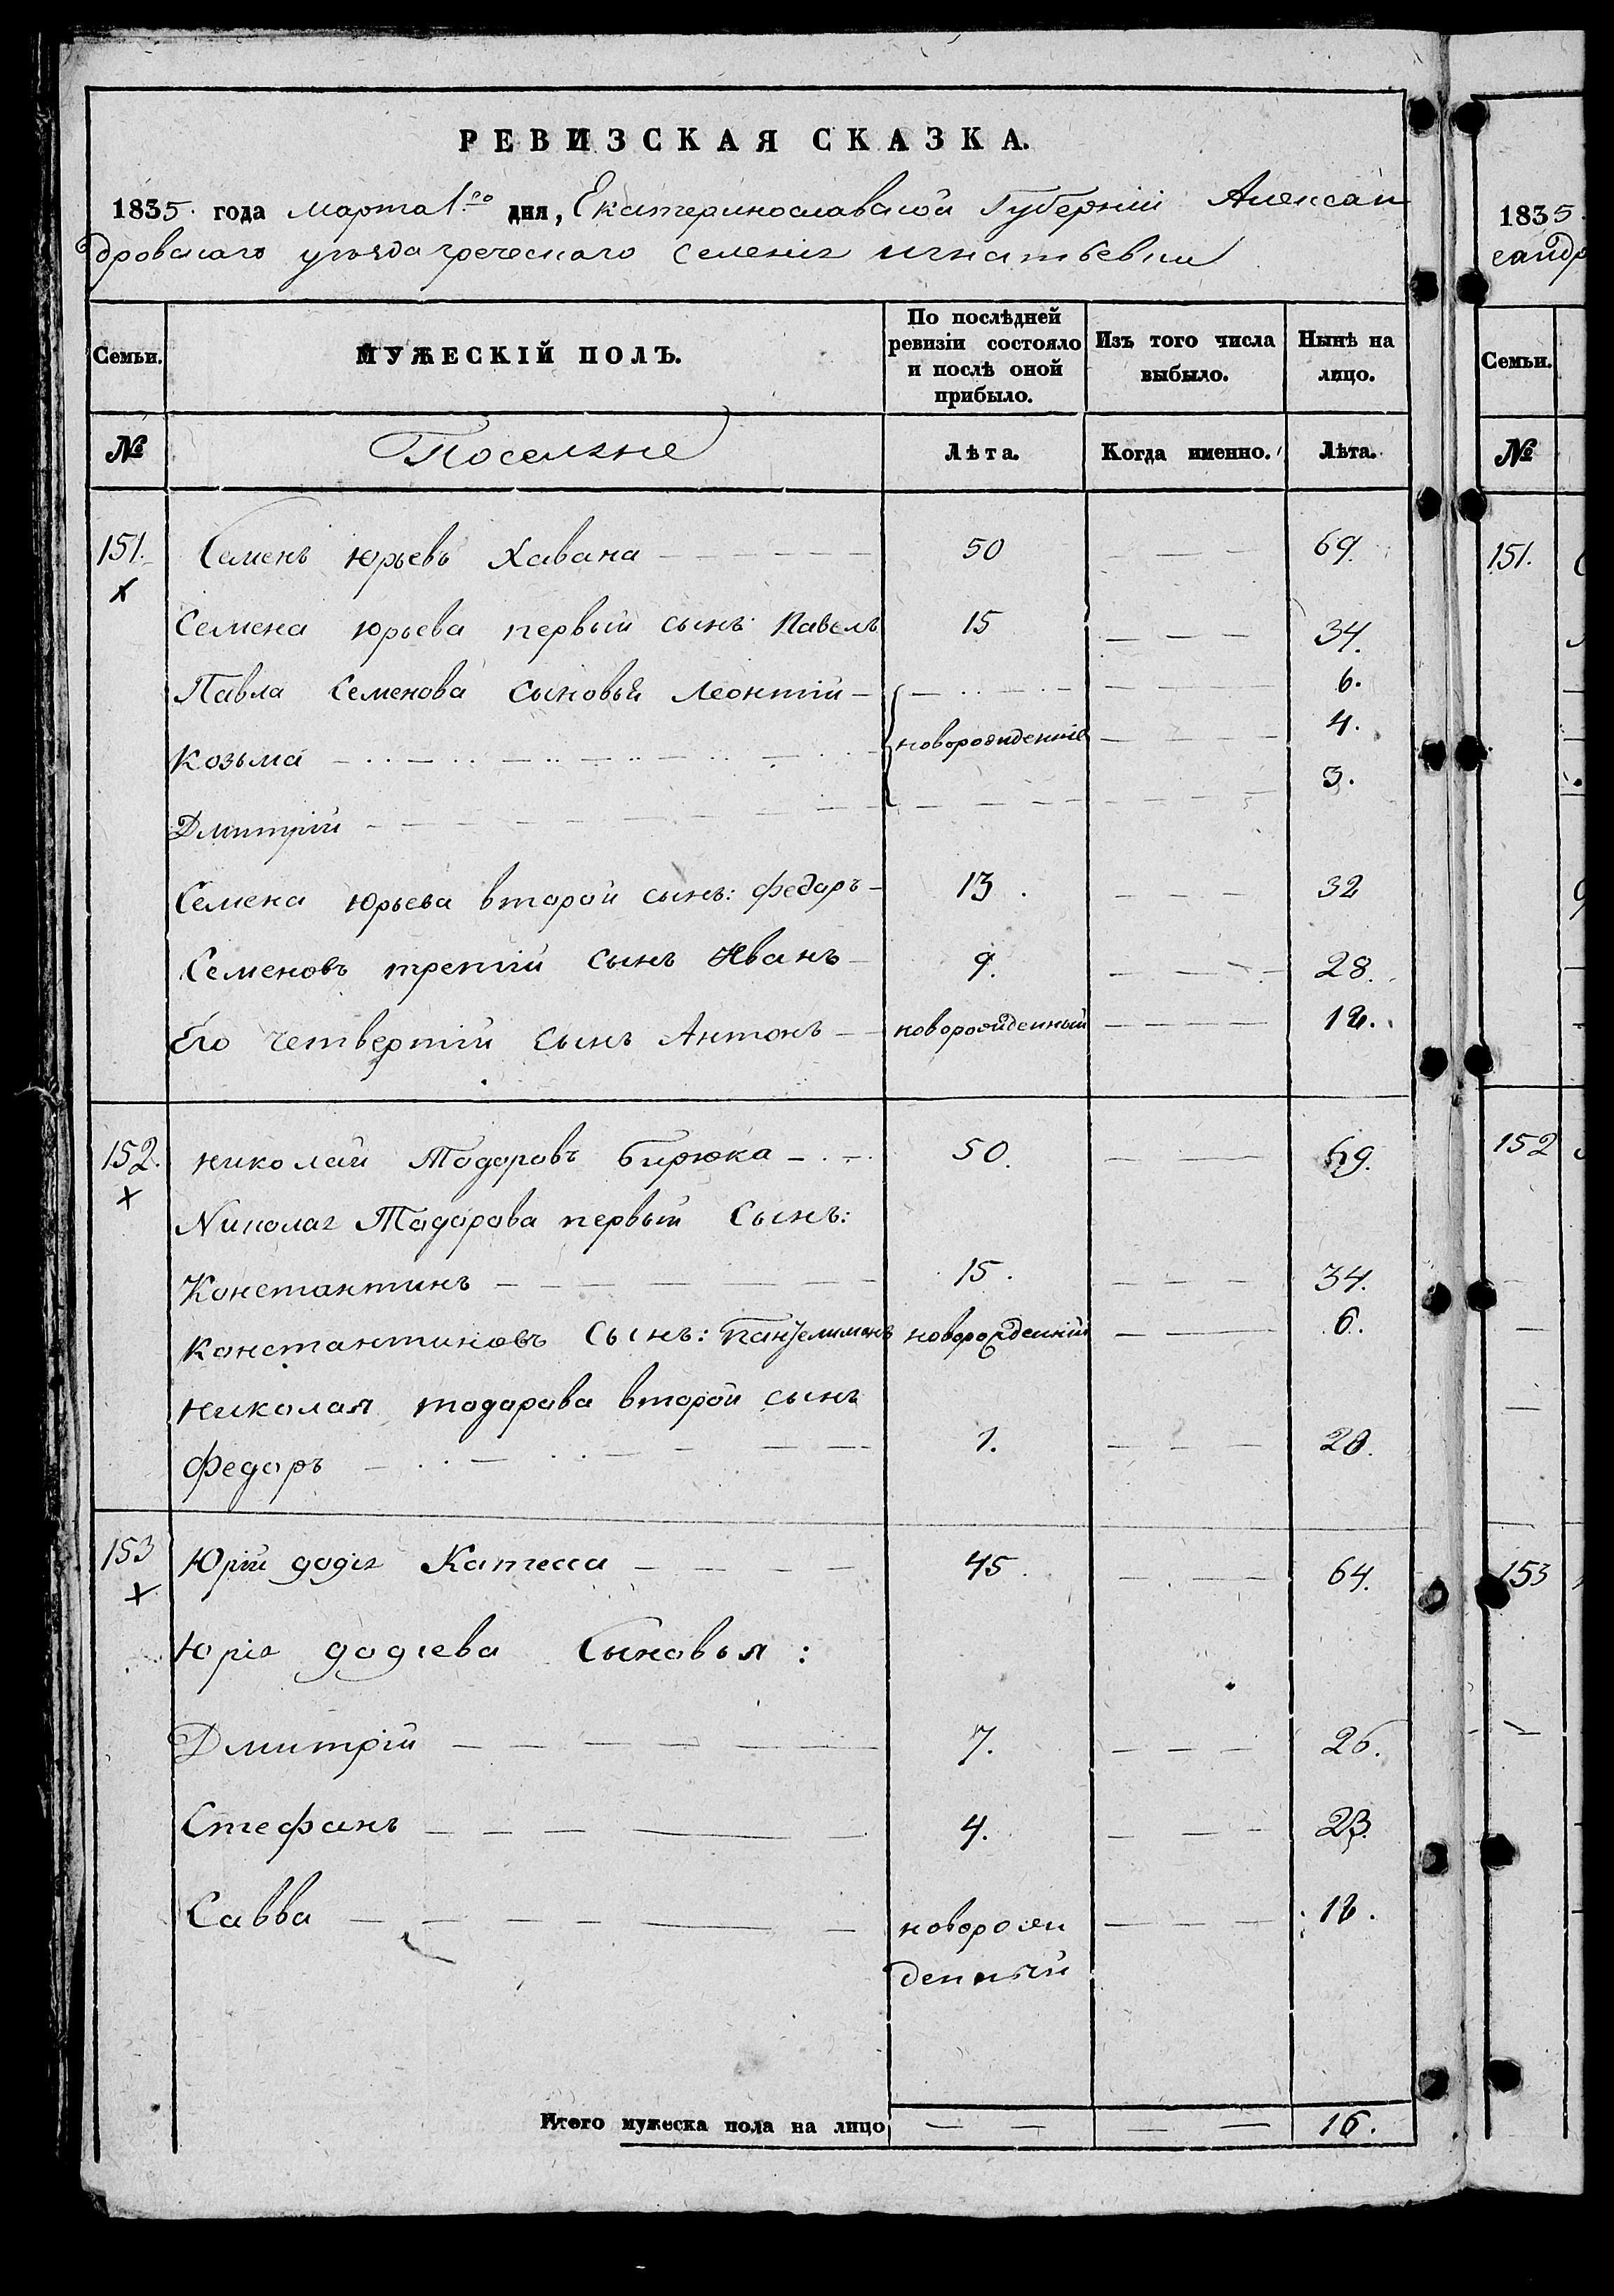 РЕВИЗСКАЯ СКАЗКА.
1835. года марта 1го дня, Екатеринославской Губернии Алексан
дровскаго уѣзда греческаго селения игнатьевки
Семьи. МУЖЕСКІЙ ПОЛЪ. По послѣдней ревизіи состояло и послѣ оной прибыло. Изъ того числа выбыло. Нынѣ на лицо.
№ Поселяне Лѣта. Когда именно. Лѣта.
151. Семенъ юрьевъ Хавана — 50 — 69.
х
Семена юрьева первый сынъ Павелъ 15 — 34.
Павла Семенова сыновья Леонтій — 6.
Козьма — новорожденніе — 4.
Дмитрій — 3.
Семена юрьева второй сынъ: федоръ — 13. — 32
Семеновъ третій сынъ Иванъ — 9. — 28.
Его четвертій сынъ Антонъ — новорожденный — 12.
152. николай Тодоровъ бирюка — 50. — 69.
х
Николая Тодорова первый сынъ:
Константинъ — 15. — 34.
константиновъ сынъ: Пантелимонъ новорожденній — 6.
николая тодорова второй сынъ
федоръ — 1. — 20.
153 Юрій додія Катесса — 45. — 64.
х
Юрія додіева Сыновья:
Дмитрій — 7. — 26.
Стефанъ — 4. — 23.
Савва — новорожденный — 12.
Итого мужеска пола на лицо — — 16.
1835.
сандр
Семьи.
№
151.
152
153